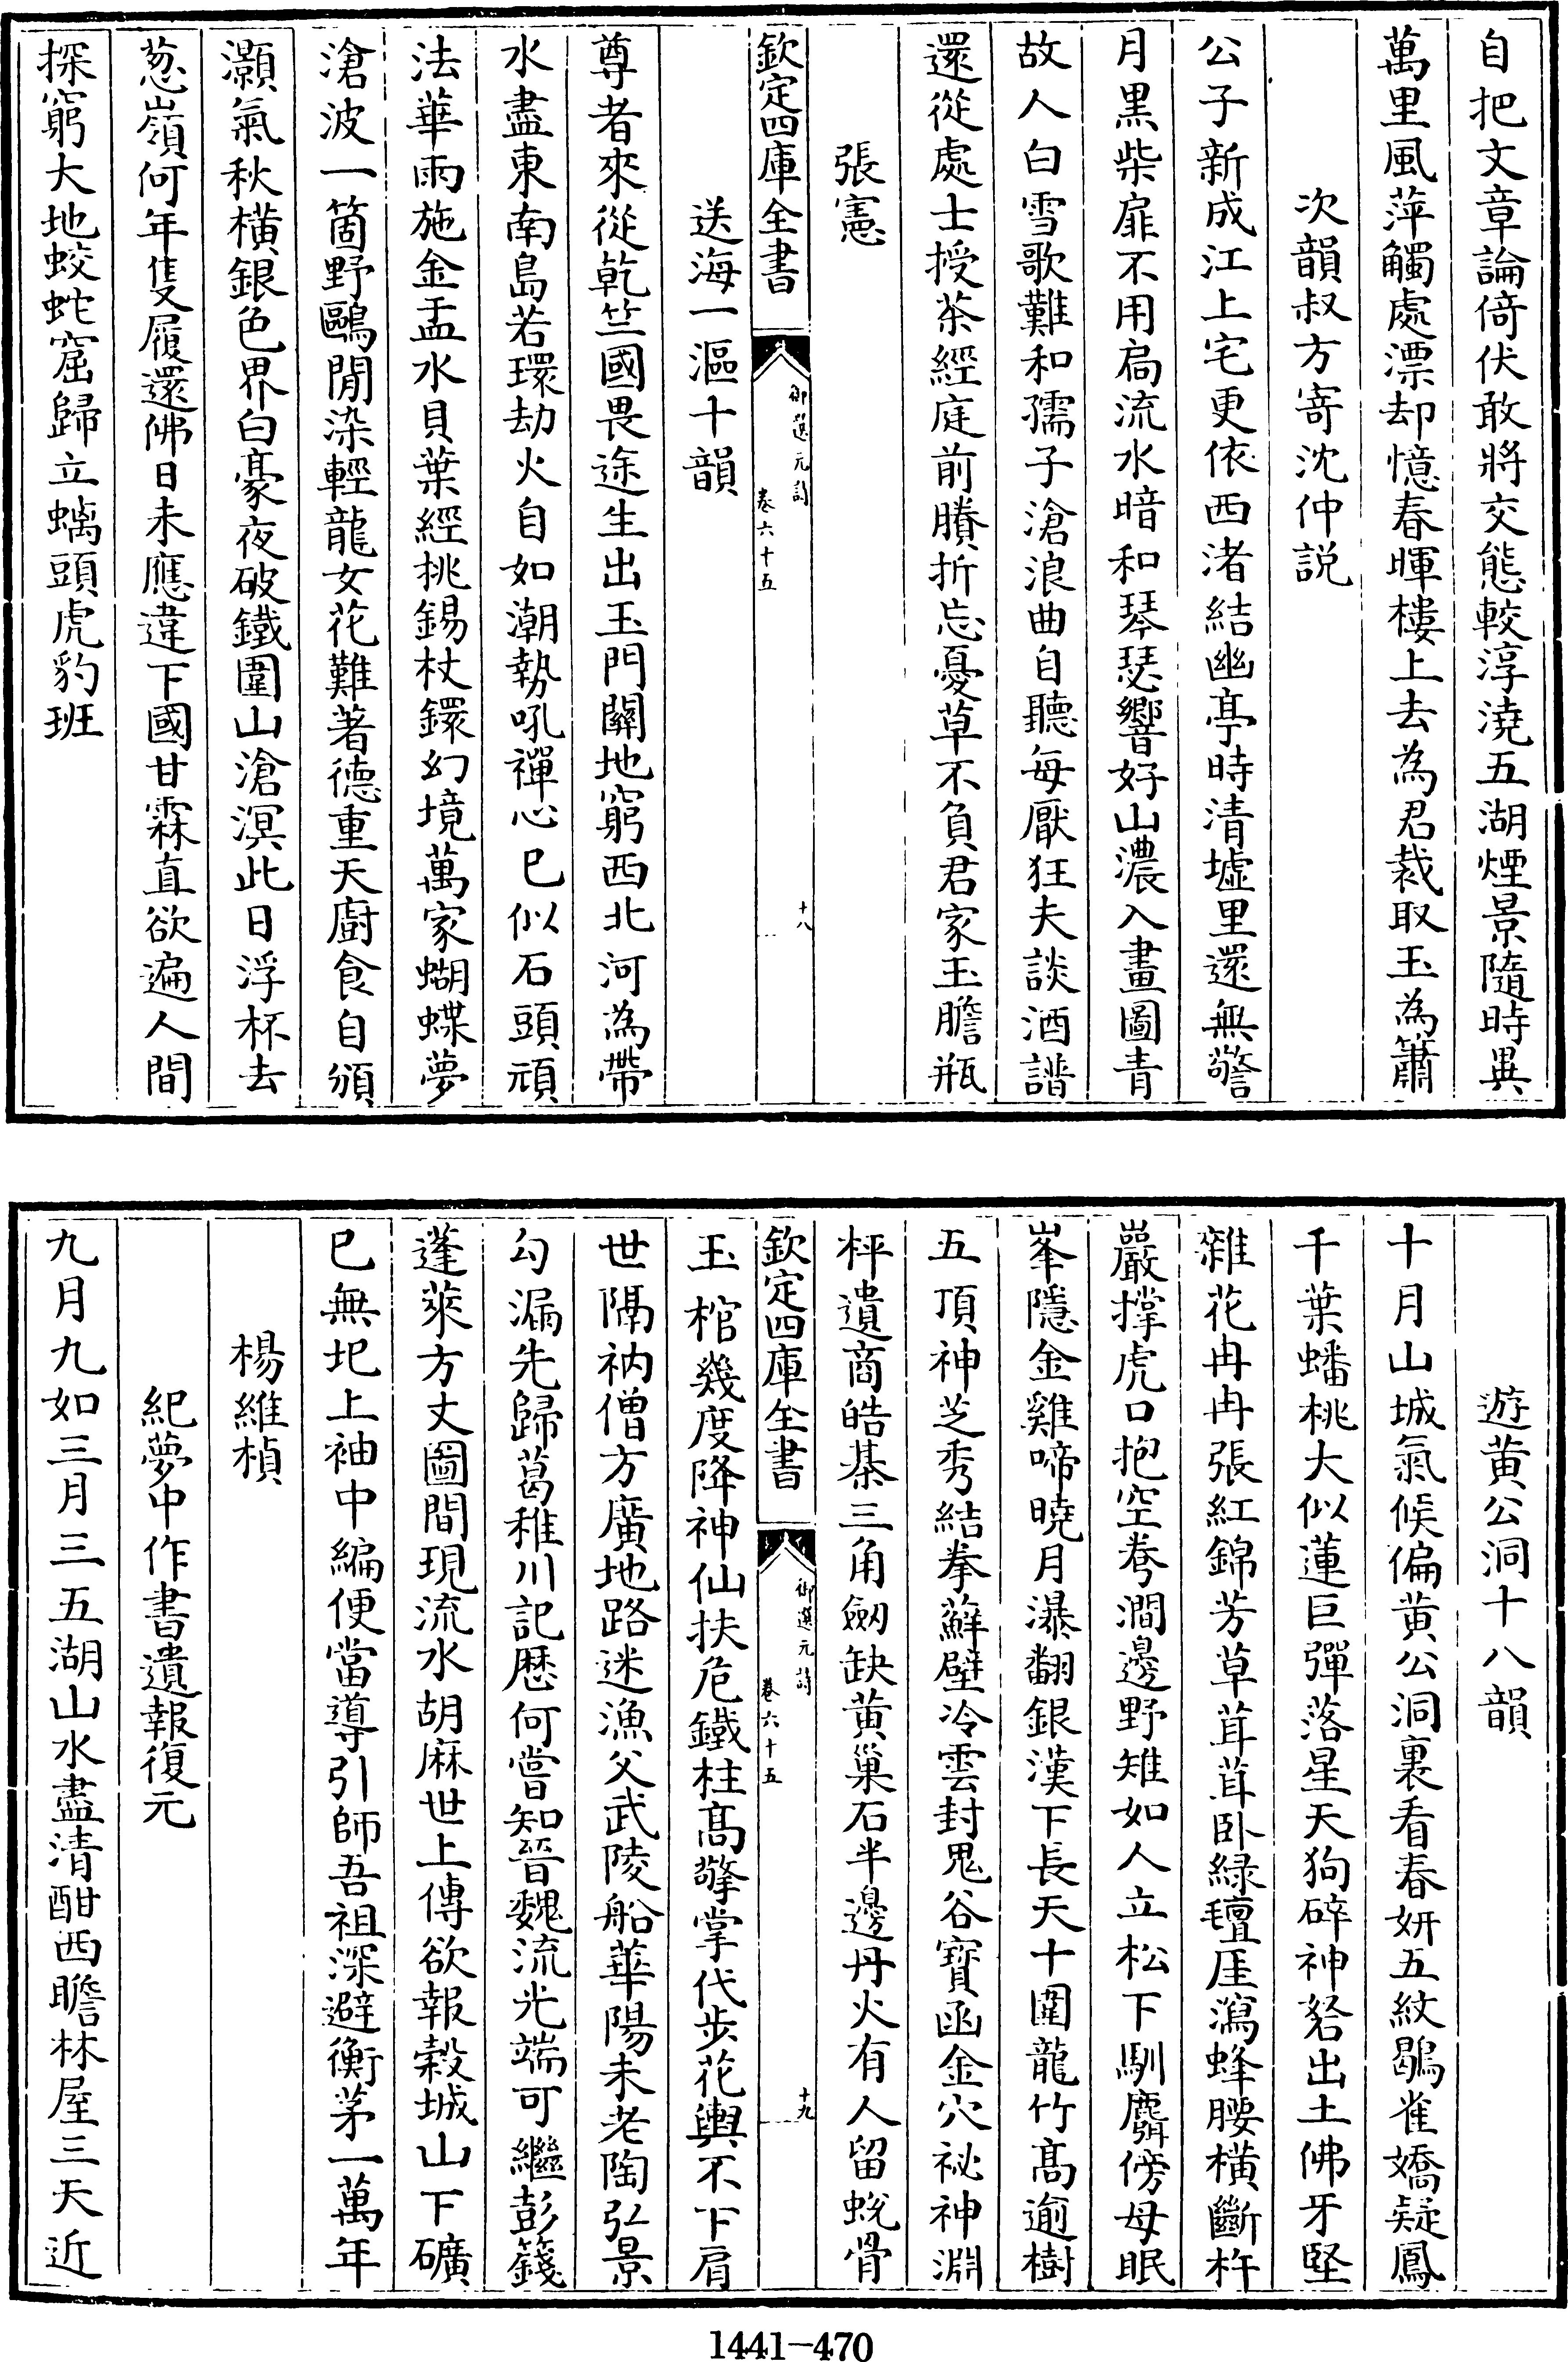 自把文章論倚伏敢將交態較淳澆五湖煙景隨時異
萬里風萍觸處漂却憶春暉樓上去為君裁取玉為簫
次韻叔方寄沈仲説
公子新成江上宅更依西渚結幽亭時清墟里還無警
月黒柴扉不用扃流水暗和琴瑟響好山濃入畫圖青
故人白雪歌難和孺子滄浪曲自聽每厭狂夫談酒譜
還從處士授茶經庭前賸折忘憂草不負君家玉膽瓶
張憲
欽定四庫全書
御選元詩
卷六十五
十八
送海一漚十韻
尊者來從乾竺國畏途生出玉門闗地窮西北河為帶
水盡東南島若環劫火自如潮勢吼禪心已似石頭頑
法華雨施金盂水貝葉經挑錫杖鐶幻境萬家蝴蝶夢
滄波一箇野鷗閒染輕龍女花難著德重天厨食自頒
灝氣秋横銀色界白豪夜破鐵圍山滄溟此日浮杯去
葱嶺何年隻履還佛日未應違下國甘霖直欲遍人間
探窮大地蛟蛇窟歸立螭頭虎豹班
遊黄公洞十八韻
十月山城氣候偏黄公洞裏看春妍五紋鷃雀嬌疑鳳
千葉蟠桃大似蓮巨彈落星天狗碎神砮出土佛牙堅
雜花冉冉張紅錦芳草茸茸卧緑氊厓瀉蜂腰横斷杵
巖撑虎口抱空弮澗邊野雉如人立松下馴麛傍母眠
峯隱金雞啼曉月瀑翻銀漢下長天十圍龍竹髙逾樹
五頂神芝秀結拳蘚壁冷雲封鬼谷寳函金穴祕神淵
枰遺商皓棊三角劔缺黄巢石半邊丹火有人留蛻骨
欽定四庫全書
御選元詩
卷六十五
十九
玉棺幾度降神仙扶危鐵柱髙擎掌代步花輿不下肩
世隔衲僧方廣地路迷漁父武陵船華陽未老陶弘景
勾漏先歸葛稚川記厯何嘗知晉魏流光端可繼彭籛
蓬萊方丈圖間現流水胡麻世上傳欲報榖城山下礦
已無圯上袖中編便當導引師吾祖深避衡茅一萬年
楊維楨
紀夢中作書遺報復元
九月九如三月三五湖山水盡清酣西瞻林屋三天近
1441-470